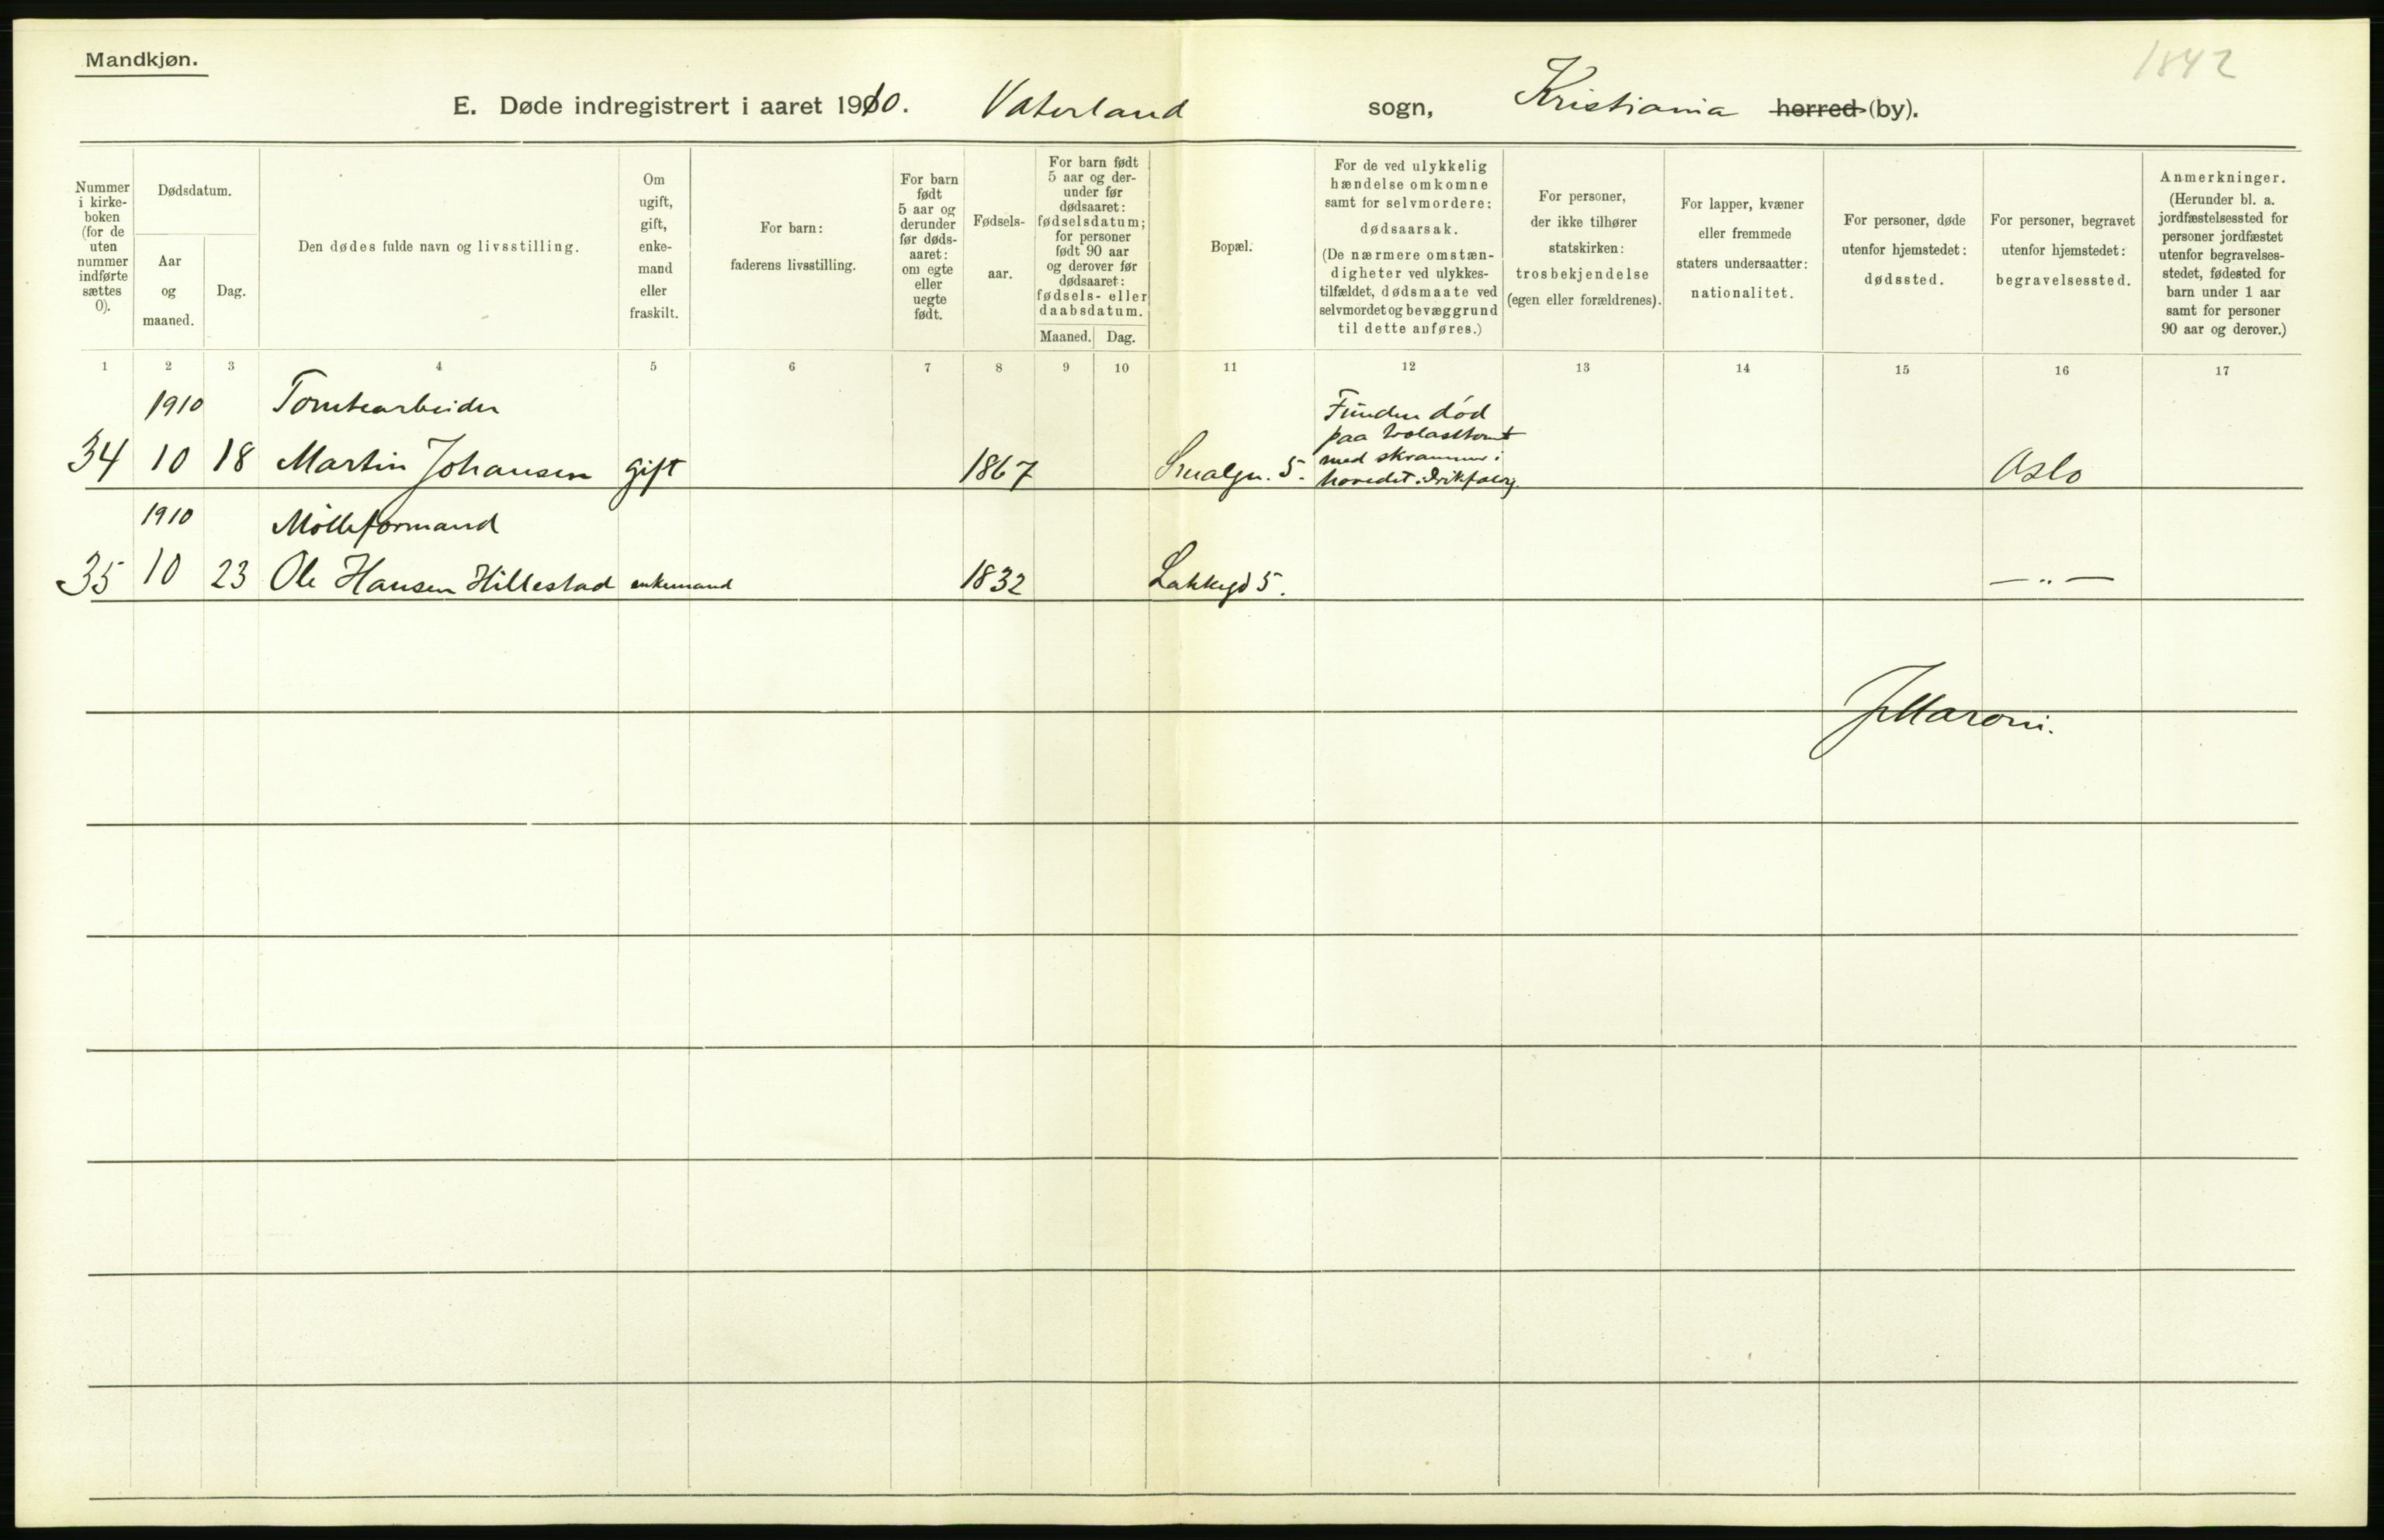 Mandkjøn.
1842
E. Døde indregistrert i aaret 1910. Vaterland sogn, Kristiania herred (by).
Nummer
i kirke-
boken
(for de
uten
nummer
indførte
sættes
0).
Dødsdatum.
Aar
og
maaned.
Dag.
Den dødes fulde navn og livsstilling.
Om
ugift,
gift,
enke-
mand
eller
fraskilt.
For barn:
faderens livsstilling.
For barn
født
5 aar og
derunder
før døds-
aaret:
om egte
eller
uegte
født.
Fødsels-
aar.
For barn født
5 aar og der-
under før
dødsaaret:
fødselsdatum;
for personer
født 90 aar
og derover før
dødsaaret:
fødsels- eller
daabsdatum.
Maaned. Dag.
Bopæl.
For de ved ulykkelig
hændelse omkomne
samt for selvmordere:
dødsaarsak.
(De nærmere omstæn-
digheter ved ulykkes-
tilfældet, dødsmaate ved
selvmordet og bevæggrund
til dette anføres.)
For personer,
der ikke tilhører
statskirken:
trosbekjendelse
(egen eller forældrenes).
For lapper, kvæner
eller fremmede
staters undersaatter:
nationalitet.
For personer, døde
utenfor hjemstedet:
dødssted.
For personer, begravet
utenfor hjemstedet:
begravelsessted.
Anmerkninger.
(Herunder bl. a.
jordfæstelsessted for
personer jordfæstet
utenfor begravelses-
stedet, fødested for
barn under 1 aar
samt for personer
90 aar og derover.)
1 2 3 4 5 6 7 8 9 10 11 12 13 14 15 16 17
1910 Tomtearbeider
34 10 18 Martin Johansen gift 1867 Smalgn. 5.
Funden død
paa
med skrammer i
hovedet.
Oslo
1910 Mølleformand
35 10 23 Ole Hansen Hillestad enkemand 1832 Lakkegd 5. — " —
Maroni.